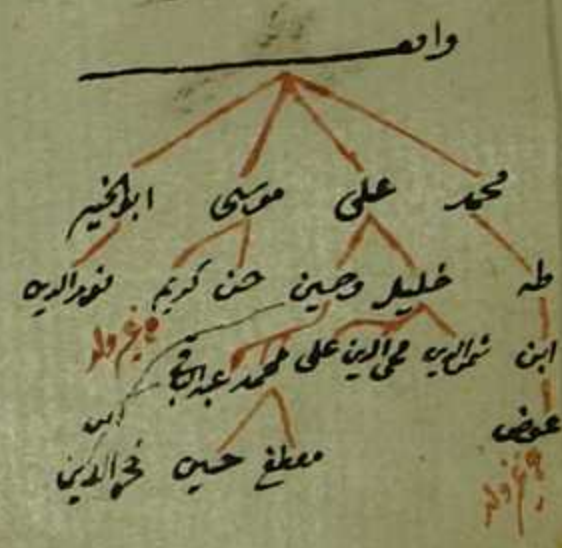 واقف
محمد على موسى ابو الخير
طه خليل وحسين حسن كريم نور الدين
ابن شمس الدين محي الدين على محمد عبد الباقي
عوض ابن
مصطفى حسين فخر الدين